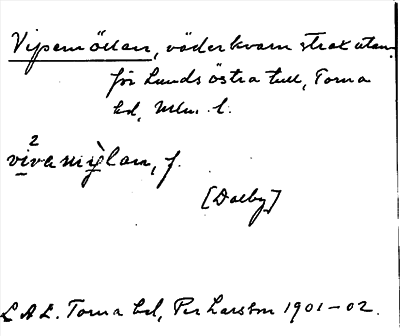 Vipemöllan, väderkvarn strax utan-
för Lunds östra tull, Torna
hd, Mlm. l.
2
viva mylan, f.
[Dalby]
L.A.L. Torna hd, Per Larsson 1901-02.